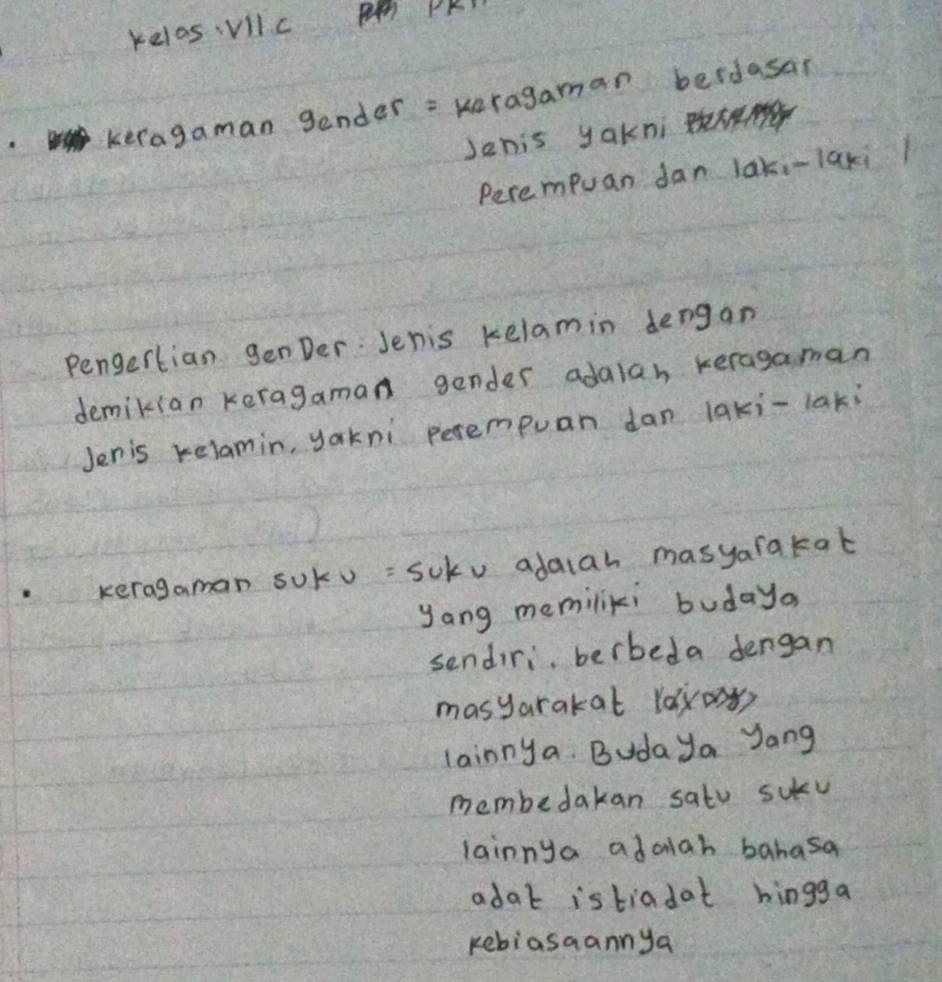 Kelas : VII C
• keragaman gender = keragaman berdasar
Jenis yakni
Perempuan dan laki-laki
Pengertian genDer : Jenis kelamin dengan
demikian keragaman gender adalah keragaman
Jenis kelamin, yakni perempuan dan laki-laki
• keragaman suku = suku adalah masyarakat
yang memiliki budaya
sendiri. berbeda dengan
masyarakat
lainnya. Budaya yang
membedakan satu suku
lainnya adalah bahasa
adat istiadat hingga
kebiasaannya